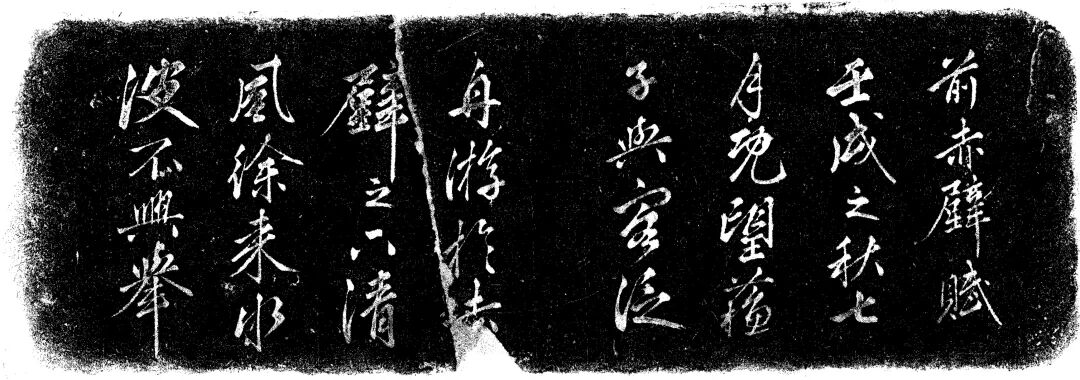 前赤壁賦
壬戌之秋七
月既望蘇
子與客泛
舟游於赤
壁之下清
風徐来水
波不興舉